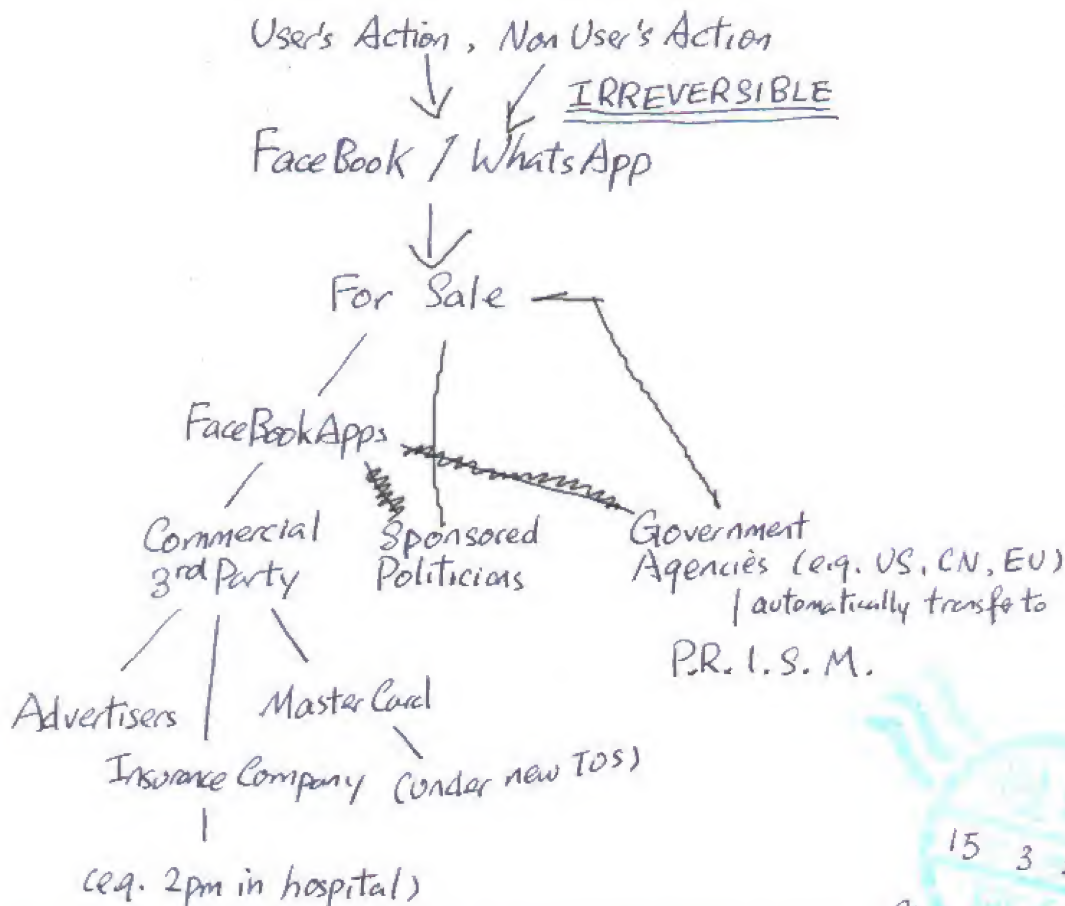 User's Action, Non User's Action
IRREVERSIBLE
FaceBook / WhatsApp
For Sale
FaceBookApps
Commercial
3rd Party
Sponsored
Politicians
Government
Agencies (e.g. US, CN, EU)
automatically transfe to
P.R.I.S.M.
Advertisers
MasterCard
Insurance Company (under new TOS)
(e.g. 2pm in hospital)
15 3